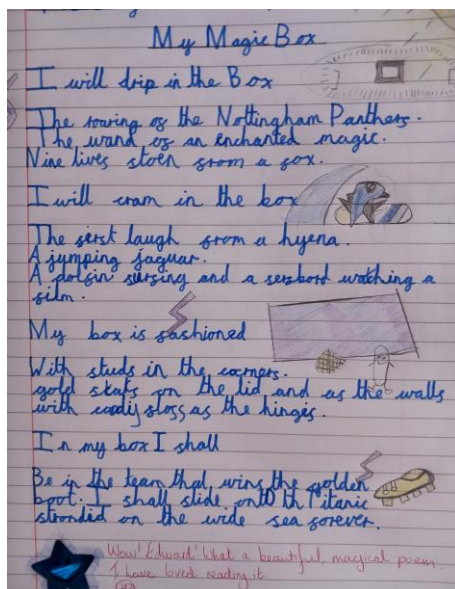 My Magic Box
I will drip in the Box
The roaring of the Nottingham Panthers.
The wand of an enchanted magic.
Nine lives stoen from a fox.
I will cram in the box
The first laugh from a hyena.
A jumping jaguar.
A dolfin surfing and a serfbord watching a
film.
My box is fashioned
With studs in the corners.
gold skats on the lid and as the walls
with candy floss as the hinges.
In my box I shall
Be in the team that wins the golden
boot. I shall slide onto th Titanic
strondid on the wide sea forever.
Wow! Edward! What a beautiful, magical poem.
I have loved reading it.